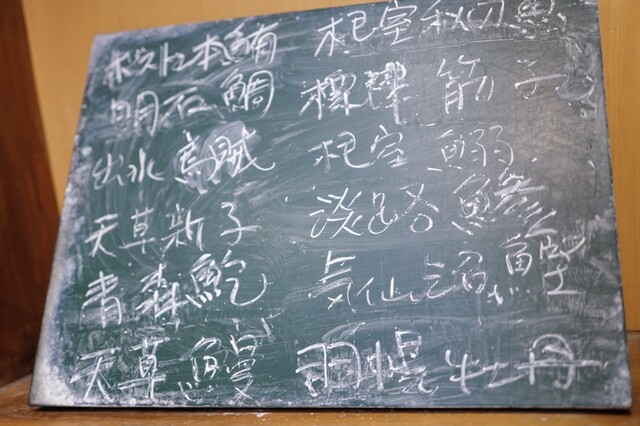 本鮪
明石鯛
出水烏賊
天草新子
青森鮑
天草鰻
根室秋刀魚
標津筋子
根室鰯
淡路鯵
気仙沼鰹
羽幌牡丹